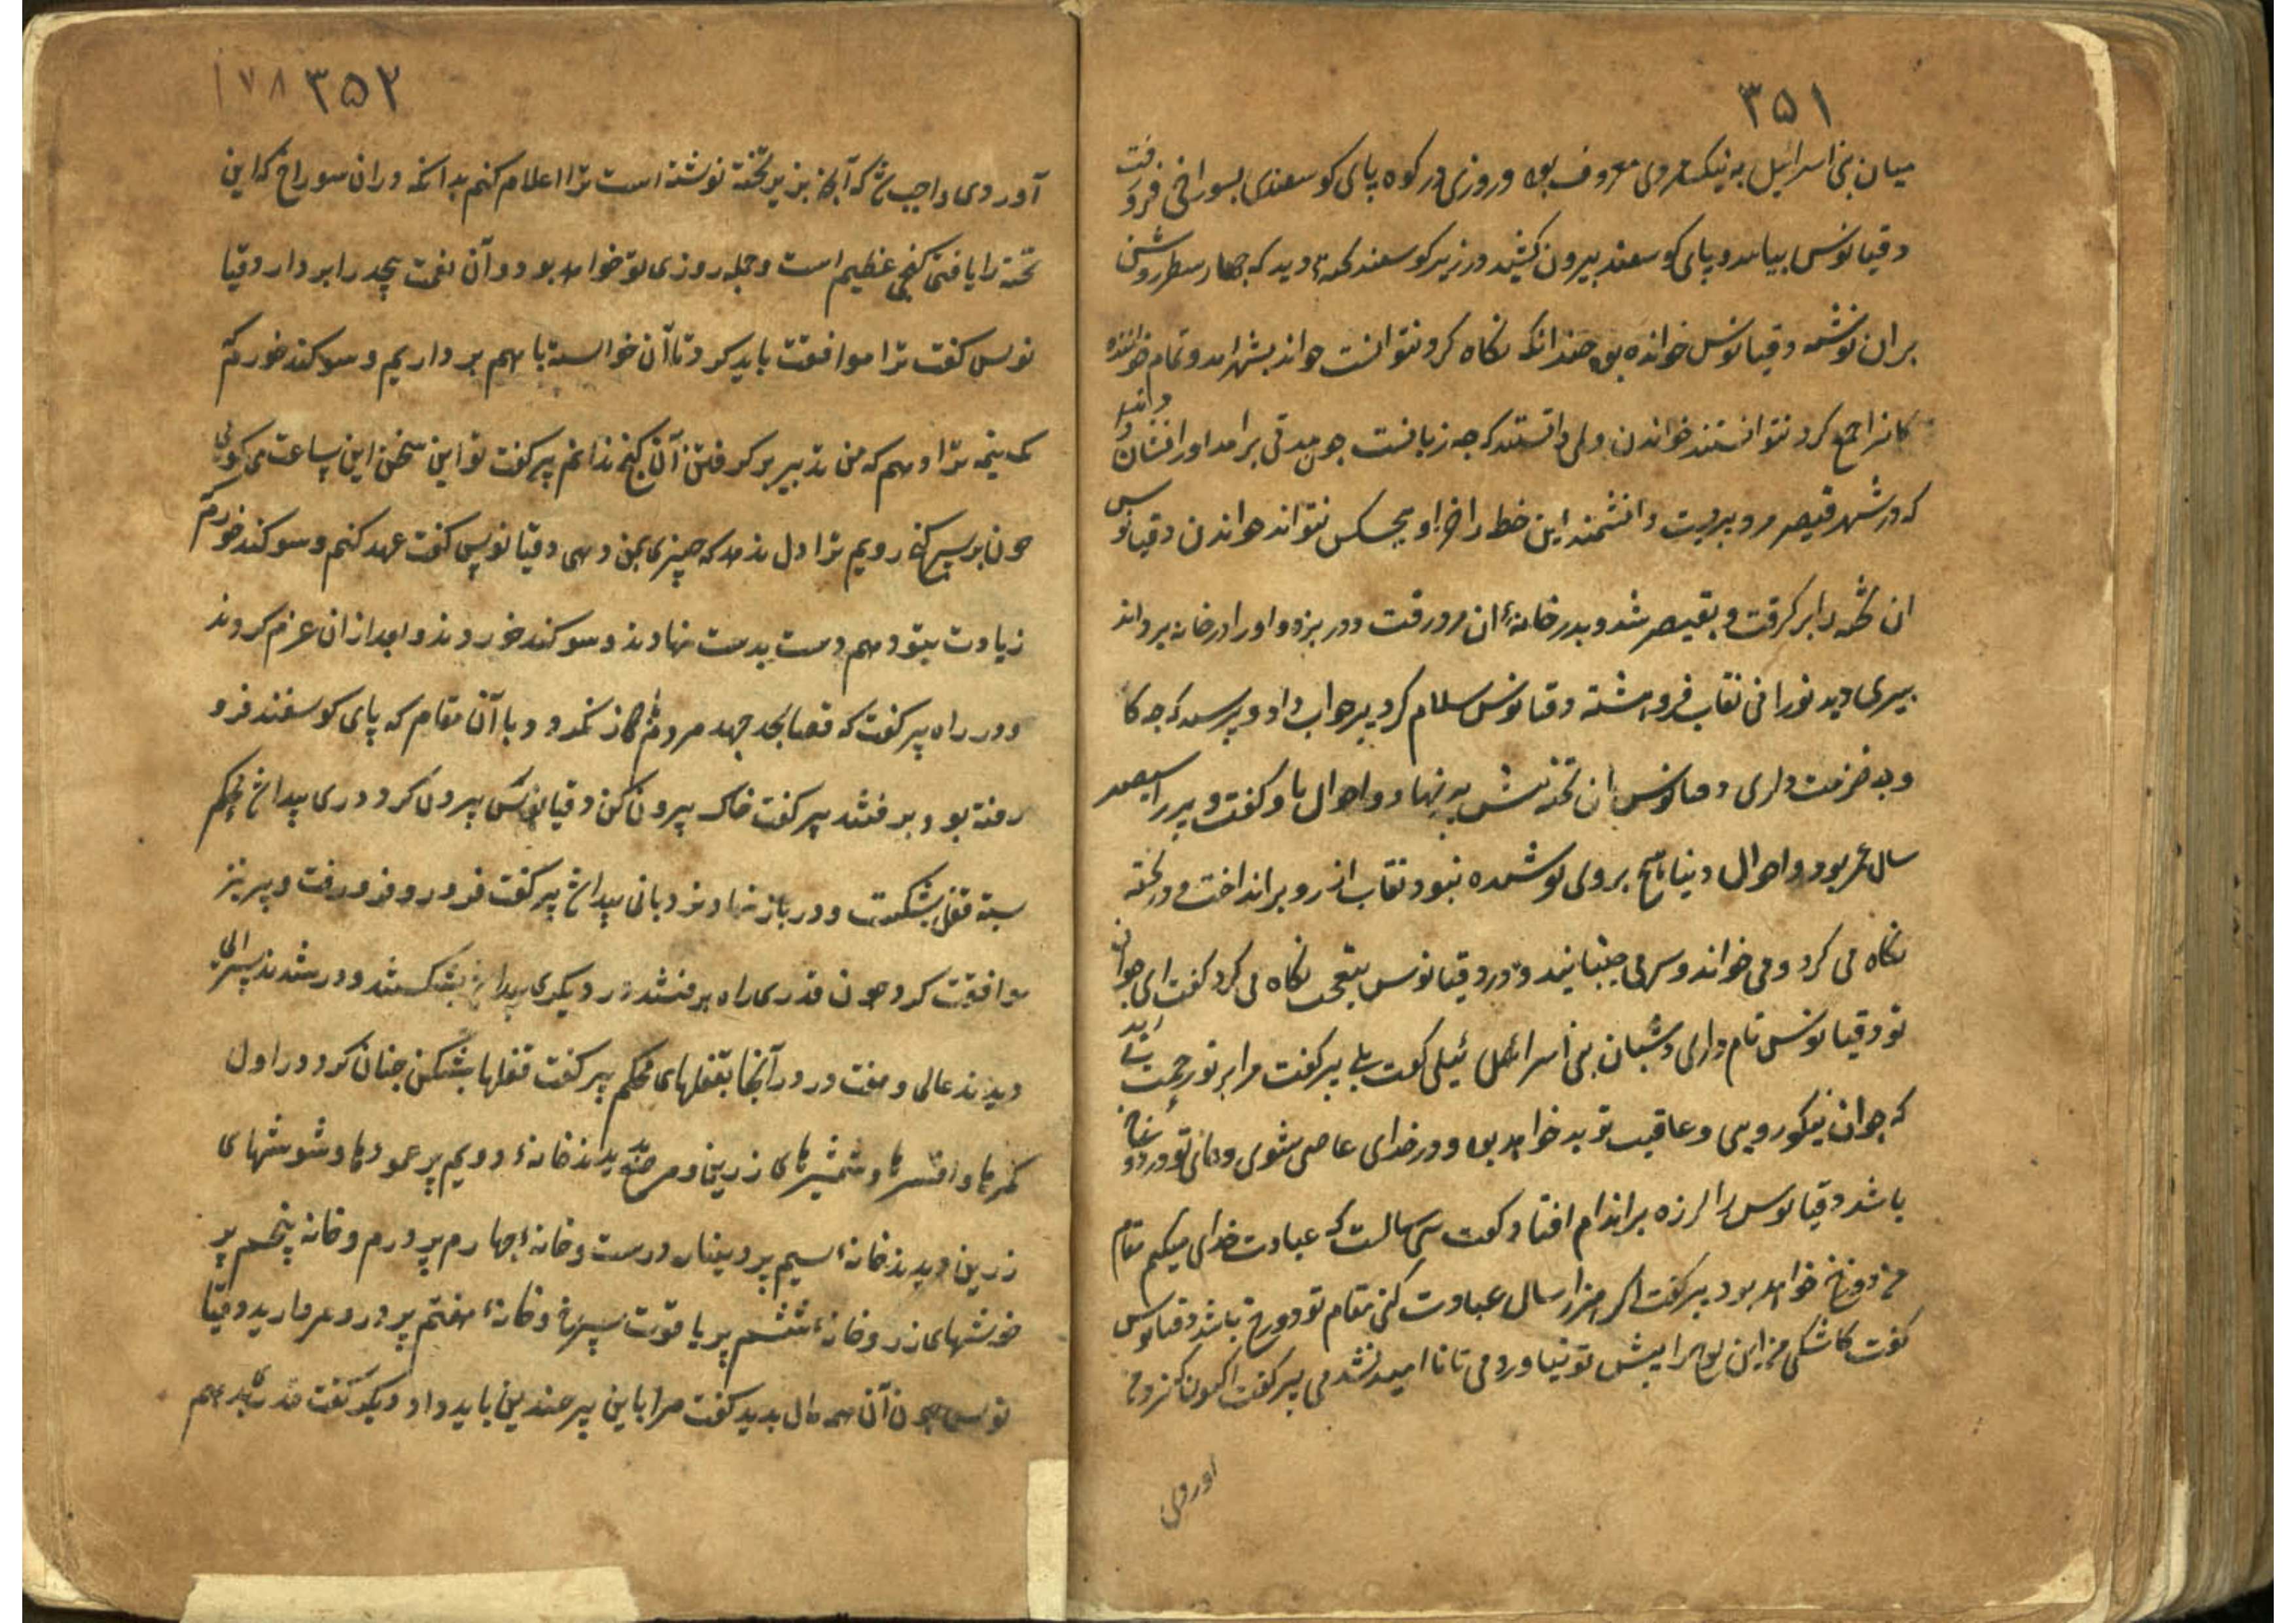 ۳۵۱
میان بنی اسرائیل به نیک مردی معروف بود و روزی در کوه پای کوسفندی بسوراخی فرو رفت
دقیانوس بیامد و پای کوسفند بیرون کشید در زیر کوسفند تخته دید که چهار سطر روشن
بران نوشته دقیانوس خوانده بود چندانکه نکاه کرد نتوانست خواند بشهر امد و تمام خواننده
کانرا جمع کرد نتوانستند خواندن ولی دانستند که چه زبانست چون مدتی برامد او را نشان دادند
که در شهر قیصر مرد پیریست دانشمند این خط را جز او هیچکس نتواند خواندن دقیانوس
ان تخته را برکرفت و بقیصر شد و بدر خانهٔ ان مرد رفت و در بزد و او را در خانه بردند
پیری دید نورانی نقاب فروهشته دقیانوس سلام کرد پیر جواب داد و پرسید که چه کا
و چه غرمت داری دقیانوس ان تخته پیش پیر نهاد و احوال باو کفت و پیر را سیصد
سال عمر بود و احوال دنیا هیچ بروی پوشیده نبود نقاب از رو برانداخت و در تخته
نکاه می کرد و می خواند و سر می جنبانید و در دقیانوس بتعجب نکاه می کرد کفت ای جوان
تو دقیانوس نام داری و شبان بنی اسرائیل کفت بلی پیر کفت مرا بر تو رحمت می اید
که جوان نیکورویی و عاقبت تو بد خواهد بود و در خدای عاصی شوی و جای تو در دوزخ
باشد دقیانوس را لرزه بر اندام افتاد کفت سی سالست که عبادت خدای میکنم مقام
من دوزخ خواهد بود پیر کفت اکر هزار سال عبادت کنی مقام تو دوزخ باشد دقیانوس
کفت کاشکی من این لوح را پیش تو نیاوردمی تا ناامید نشدمی پیر کفت اکنون که نزد من
اوردی
۳۵۲ ۱۷۸
آوردی واجب شد که آنچه برین تخته نوشته است ترا اعلام کنم بدانکه دران سوراخ که این
تخته را یافتی کنجی عظیم است و جمله روزی تو خواهد بود و آن نعمت بیحد را بردار دقیا
نوس کفت ترا موافقت باید کرد تا آن خواسته با هم برداریم و سوکند خورم که
یک نیمه ترا دهم که من تدبیر برکرفتن آن کنج ندانم پیر کفت تو این سخن این ساعت می کوئی
چون بر سر کنج رویم ترا دل ندهد که چیزی بمن دهی دقیانوس کفت عهد کنم و سوکند خورم که
زیادت بتو دهم دست بدست نهادند و سوکند خوردند و بعد ازان عزم کردند
و در راه پیر کفت که قضا بجد جهد مردم باز نکردد و با آن مقام که پای کوسفند فرو
رفته بود برفتند پیر کفت خاک بیرون کن دقیانوس بیرون کرد دری پیدا شد محکم
بسته قفل بشکست و در باز نهاد نردبانی پیدا شد پیر کفت فرو رو فرو رفت و پیر نیز
موافقت کرد چون قدری راه برفتند در دیکری پیدا شد بشکستند و در شدند سرای
دیدند عالی و هفت در در آنجا بقفلهای محکم پیر کفت قفلها بشکن چنان کرد در اول
کمرها و افسرها و شمشیرهای زرین و مرصع دیدند خانهٔ دویم پر عمودها و شوشهای
زرین دیدند خانهٔ سیم پر دینار درست و خانهٔ چهارم پر درم و خانه پنجم پر
خوشهای زر و خانهٔ ششم پر یاقوت سرخ و خانهٔ هفتم پر در و مروارید دقیا
نوس چون آن همه مال بدید کفت مرا باین پیر چندین باید داد دیکر کفت